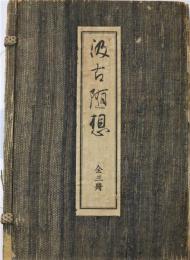 汲古随想
全三冊